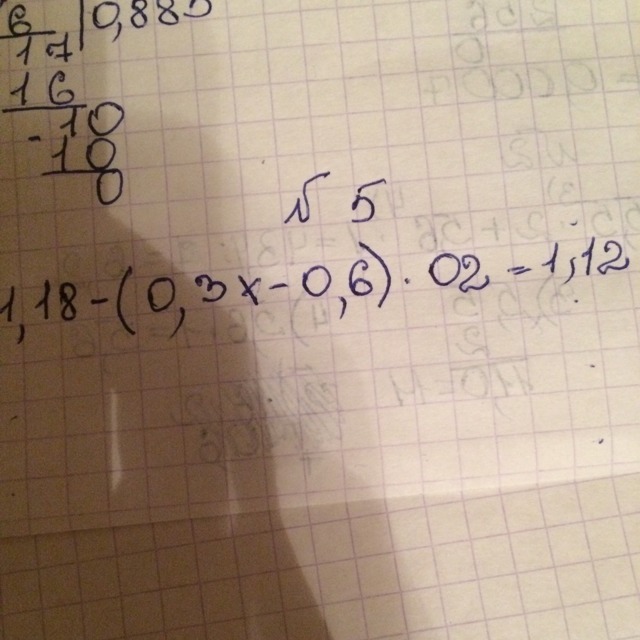 6 0,885
17
16
-10
10
0
№ 5
1,18-(0,3x-0,6)·02,=1,12